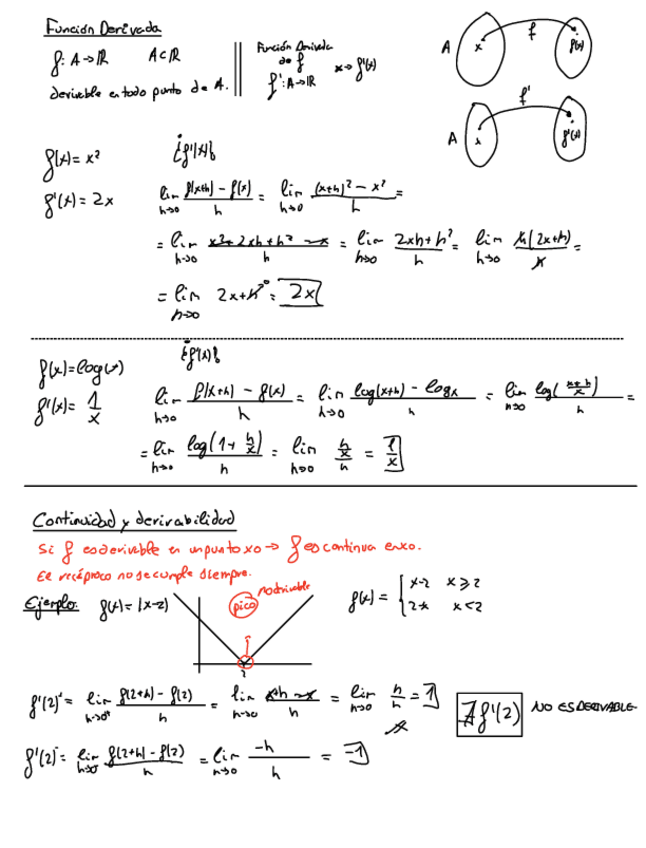 Función Derivada
f: A→ℝ A⊂ℝ
derivable en todo punto de A.
Función Derivada
de f
f': A→ℝ x→f'(x)
A x f f(x)
A x f' f'(x)
f(x)= x² ¿f'(x)?
f'(x)= 2x lim h→0 f(x+h) - f(x) / h = lim h→0 (x+h)² - x² / h =
= lim h→0 x²+2xh+h² - x / h = lim h→0 2xh+h² / h = lim h→0 h(2x+h) / h =
= lim h→0 2x+h⁰ = 2x
f(x)=log(x) ¿f'(x)?
f'(x)= 1/x lim h→0 f(x+h) - f(x) / h = lim h→0 log(x+h) - logx / h = lim h→0 log(x+h / x) / h =
= lim h→0 log(1+ h/x) / h = lim h→0 h/x / h = 1/x
Continuidad y derivabilidad
Si f es derivable en un punto x0 → f es continua en x0.
El recíproco no se cumple siempre.
Ejemplo: f(x)= |x-2|
pico no derivable
2
f(x)= { x-2 x≥2
2-x x<2
f'(2)⁺= lim h→0⁺ f(2+h) - f(2) / h = lim h→0 h / h = lim h→0 h / h = 1
∄f'(2) NO ES DERIVABLE
f'(2)⁻= lim h→0⁻ f(2+h) - f(2) / h = lim h→0 -h / h = -1